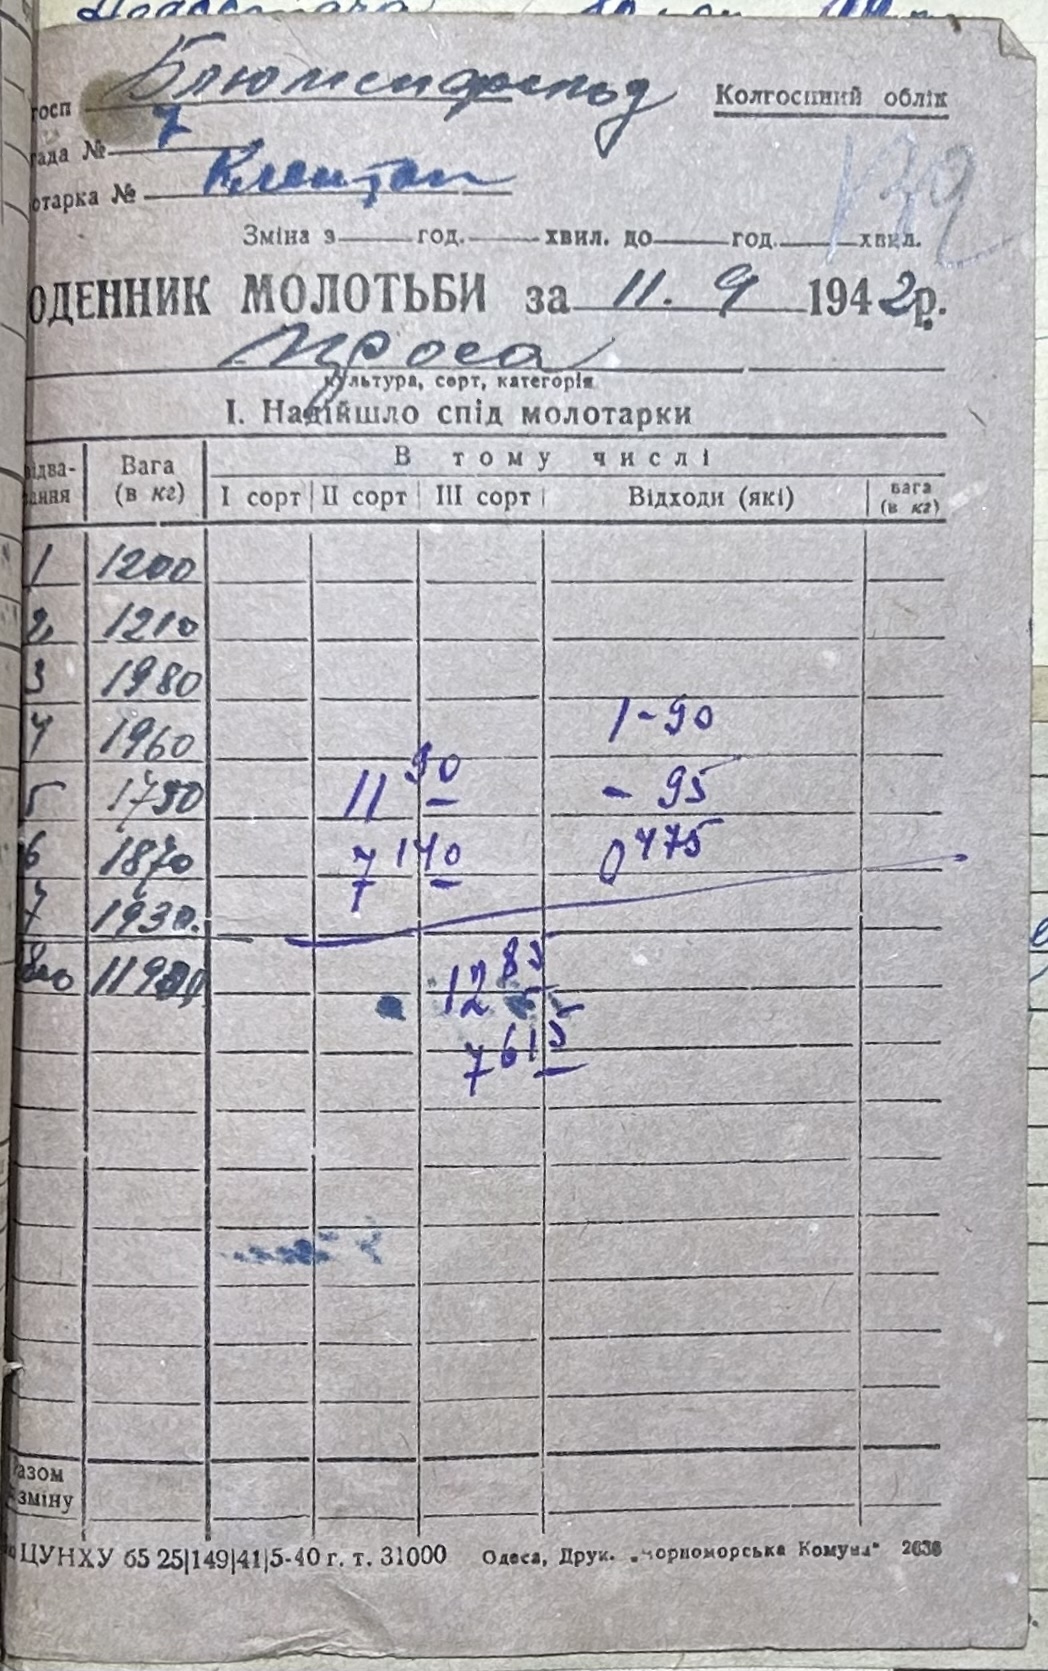 Блюменфельд
госп
Колгоспний облік
гада № 7
отарка № Клентап
172
Зміна з год. хвил. до год. хвил.
ОДЕННИК МОЛОТЬБИ за 11. 9 1942р.
Проса
культура, сорт, категорія
І. Надійшло спід молотарки
ідва-
ання
Вага
(в кг)
В тому числі
І сорт ІІ сорт ІІІ сорт Відходи (які) вага
(в кг)
1 1200
2 1210
3 1980
4 1960 1-90
5 1790 11 90 - 95
6 1870 7 140 0475
7 1930.
1285
7615
Разом
зміну
ЦУНХУ 65 25|149|41|5-40 г. т. 31000 Одеса, Друк. „Чорноморська Комуна" 2636